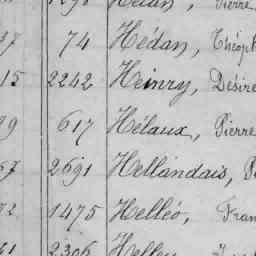 37 74 Hédan, Théoph
15 2242 Heinry, Désiré
99 617 Hélaux, Pierre
67 2691 Hellandais, P
72 1475 Helléo, Fran
61 2306 Helley